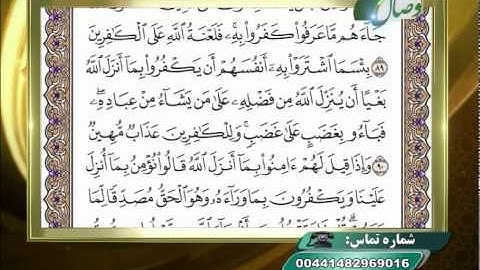 وصال
جَاءَهُم مَّا عَرَفُوا۟ كَفَرُوا۟ بِهِۦ ۚ فَلَعْنَةُ ٱللَّهِ عَلَى ٱلْكَٰفِرِينَ
٨٩ بِئْسَمَا ٱشْتَرَوْا۟ بِهِۦٓ أَنفُسَهُمْ أَن يَكْفُرُوا۟ بِمَآ أَنزَلَ ٱللَّهُ
بَغْيًا أَن يُنَزِّلَ ٱللَّهُ مِن فَضْلِهِۦ عَلَىٰ مَن يَشَآءُ مِنْ عِبَادِهِۦ ۖ
فَبَآءُو بِغَضَبٍ عَلَىٰ غَضَبٍ ۚ وَلِلْكَٰفِرِينَ عَذَابٌ مُّهِينٌ
٩٠ وَإِذَا قِيلَ لَهُمْ ءَامِنُوا۟ بِمَآ أَنزَلَ ٱللَّهُ قَالُوا۟ نُؤْمِنُ بِمَآ أُنزِلَ
عَلَيْنَا وَيَكْفُرُونَ بِمَا وَرَآءَهُۥ وَهُوَ ٱلْحَقُّ مُصَدِّقًا لِّمَا
شماره تماس:
00441482969016